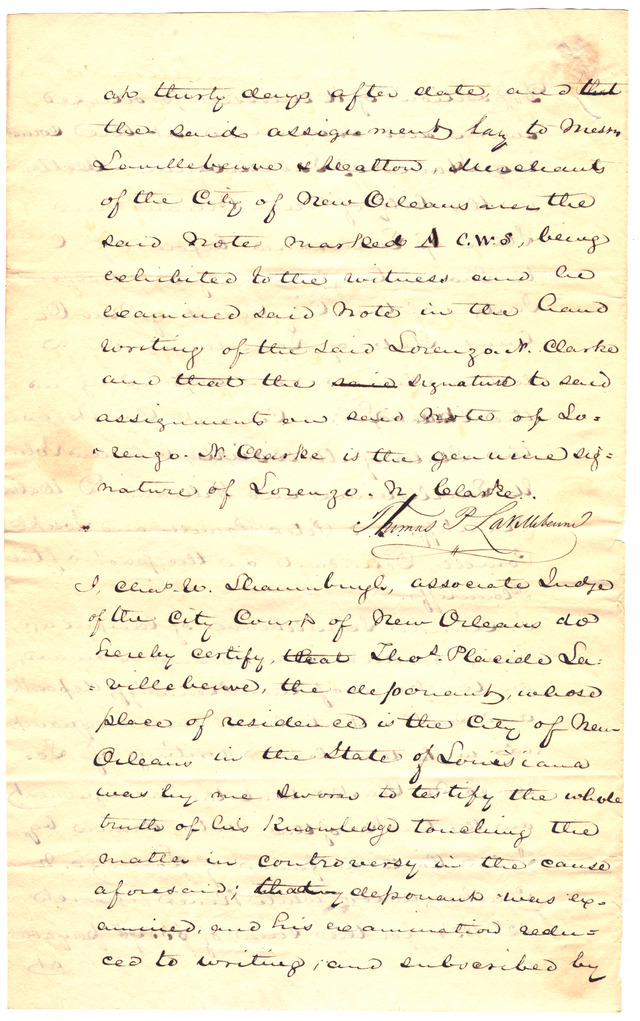 at thirty days after date, and that
the said assignment by to Messrs
Lavillebeuvre & Heatton, Merchants
of the City of New Orleans the
said Note marked A C.W.S, being
exhibited to the witness and he
examined said Note in the hand
writing of the said Lorenzo. N. Clarke
and that the said signature to said
assignment on said Note of Lo-
-renzo. N. Clarke is the genuine sig-
nature of Lorenzo. N Clarke.
Thomas P Lavillebeuvre
I, Chas. W. Shaumburgh, associate Judge
of the City Court of New Orleans do
hereby certify, that Thos. Placide La-
-villebeuve, the deponant, whose
place of residence is the City of New
Orleans in the State of Louisiana
was by me sworn to testify the whole
truth of his Knowledge touching the
matter in controversy in the cause
aforesaid; that deponant was ex-
amined, and his examination redu-
ced to writing, and subscribed by